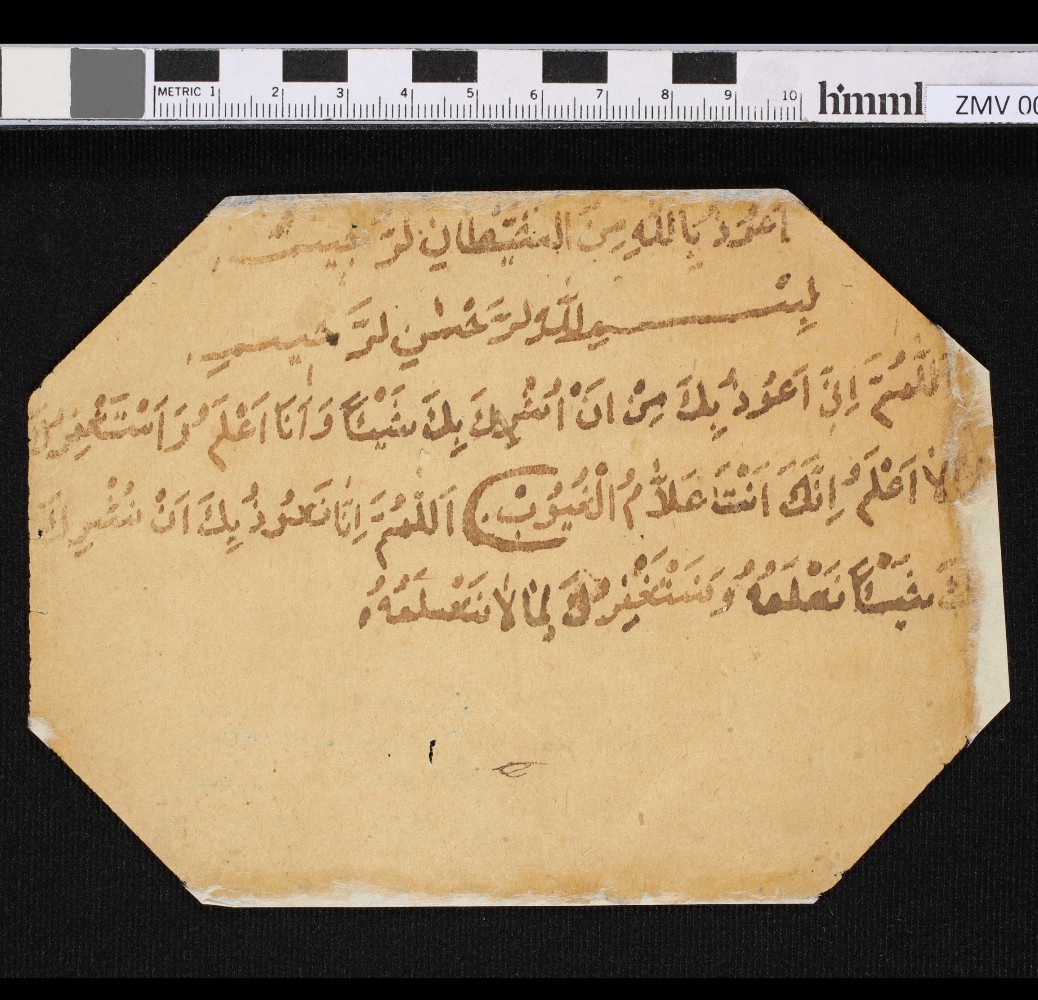 METRIC 1 2 3 4 5 6 7 8 9 10 hmml ZMV 00
اَعُوذُ بِاللّٰهِ مِنَ الشَّيْطَانِ لرَّجِيمْ
بِسْــــمِ اللّٰهِ لرَّحْمٰنِ لرَّحِيمِ
اَللّٰهُمَّ اِنِّى اَعُوذُ بِكَ مِنْ اَنْ اُشْرِكَ بِكَ شَيْئًا وَاَنَا اَعْلَمُ وَاَسْتَغْفِرُكَ
لاَ اَعْلَمُ اِنَّكَ اَنْتَ عَلاَّمُ الْغُيُوبْ اَللّٰهُمَّ اِنَّا نَعُوذُ بِكَ اَنْ نُشْرِكَ
شَيْئًا نَعْلَمُهُ وَنَسْتَغْفِرُكَ لِمَا لاَ نَعْلَمُهُ